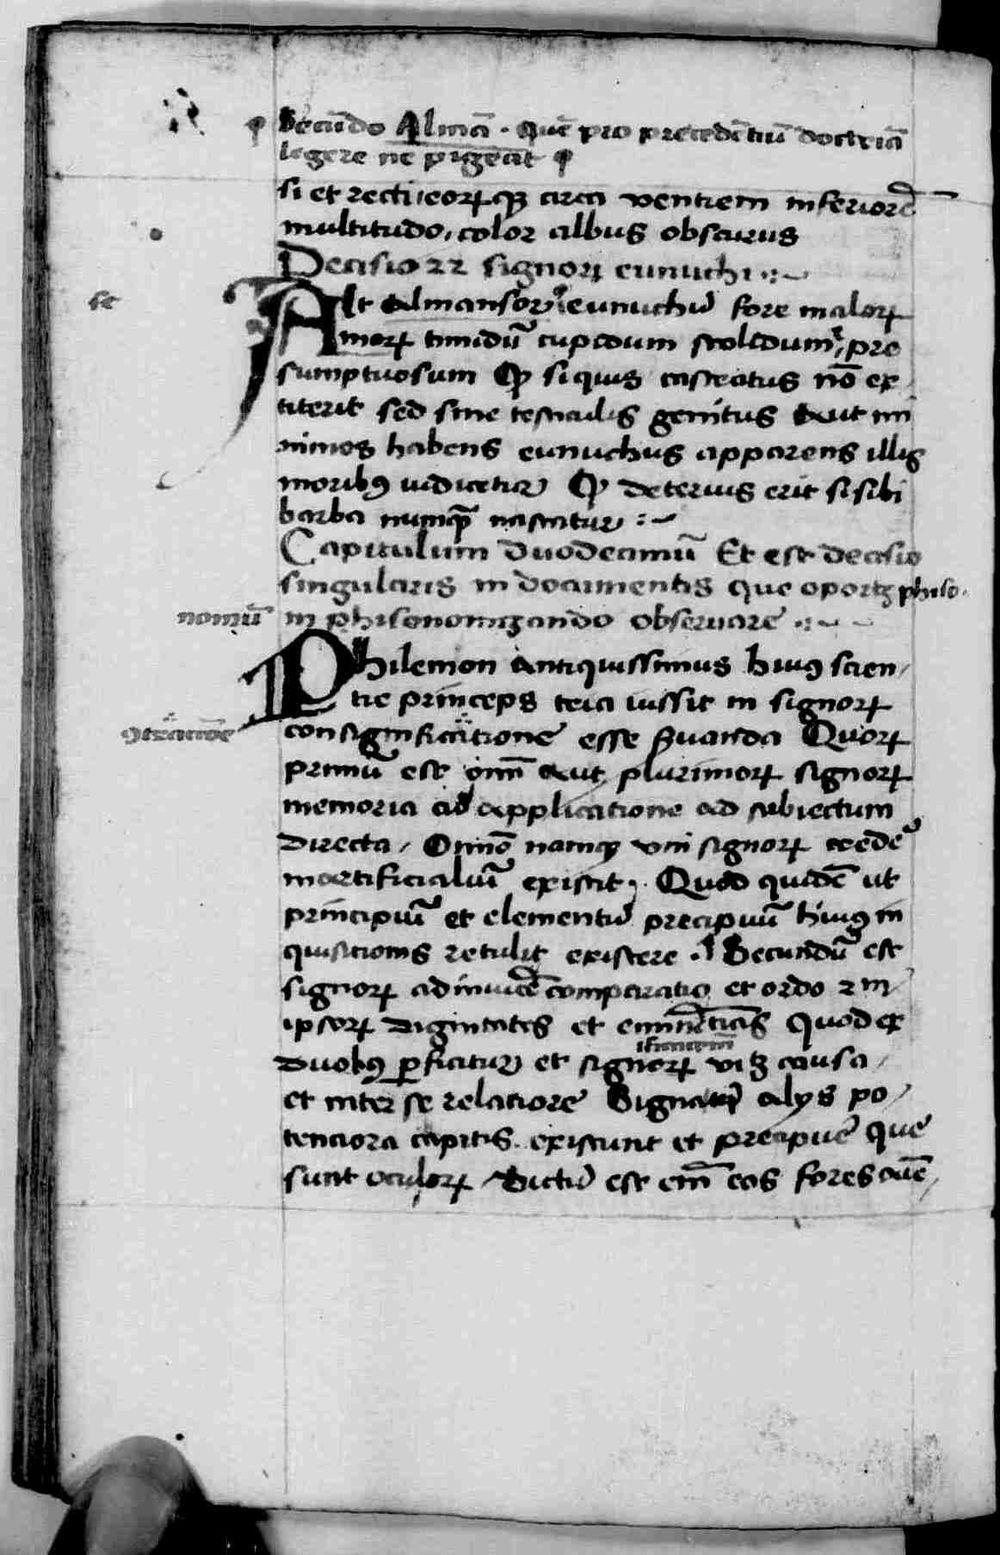 Secūdo Almā. Quē pro precedētiū doctriā
legere ne pigeat
si et recti, eorꝝqꝫ circa ventrem inferiorē
multitudo, color albus obscurus
Decisio 22 signorꝝ eunuchi
se
Ait Almansor eunuchū fore malorꝝ
morꝝ timidū cupidum stolidum, pre
sumptuosum Qꝫ si quis castratus nō ex
titerit sed sine testiculis genitus aut mi
nimos habens eunuchus apparens illis
moribꝰ iudicetur Qꝫ deterius erit si sibi
barba numqꝫ nascatur
Capitulum duodecimū Et est decisio
singularis in documentis que oportꝫ phiso
nomū in phisonomizando obseruare
Philemon antiquissimus huiꝰ scien
tie princeps tria iussit in signorꝝ
consignificatione esse ẜuanda Quorꝝ
primū est oīm aut plurimorꝝ signorꝝ
memoria ad applicatione ad subiectum
directa, Omnō namqꝫ vni signorꝝ credeᷣ
mortificatiuū existit. Quod quidē ut
principiū et elementū precipuū huiꝰ in
quisitionis retulit existere. Secundū est
signorꝝ adinuicē comparatio et ordo 2 in
ipsorꝝ dignitates et eminētias Quod ex
duobꝰ ꝑficitur et signorꝝ viꝫ causa
et inter se relatiore Signa alijs po
tenciora capitis existunt et precipue que
sunt oculorꝝ, Dictū est em̄ eos fores